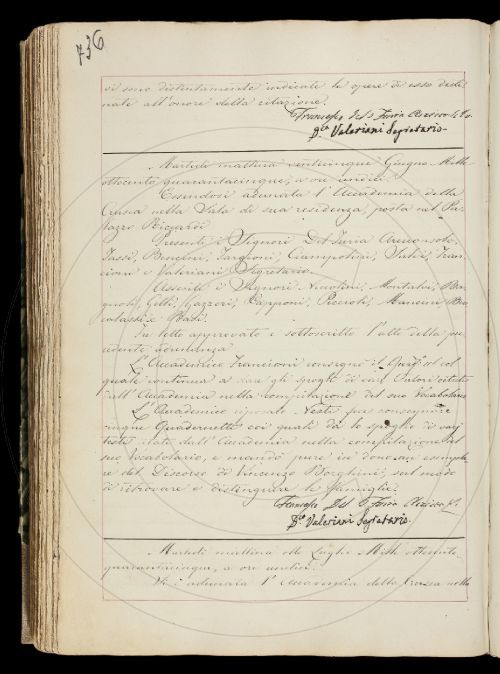 736
vi sono distintamente indicate le opere di esso desti-
nate all'onore della citazione.
Francesco del Furia
Valeriani Segretario.
Martedì mattina venticinque Giugno Mille
ottocento quarantacinque, a ore undici.
Essendosi adunata l'Accademia della
Crusca nella Sala di sua residenza posta nel Pa-
lazzo Riccardi
Presenti i Signori Del Furia Arciconsolo,
Tassi, Bencini, Targioni, Ciampolini, Fran-
cioni e Valeriani Segretario.
Assenti i Signori Niccolini, Montalvi, Ba-
gnoli, Gelli, Gazzeri, Capponi, Puccioli, Mancini,
e Nesti.
Fu letto approvato e sottoscritto l'atto della pre-
cedente adunanza
L'Accademico Francioni consegnò il col
quale continua a dare gli spogli di citati
dall'Accademia nella compilazione del suo Vocabolario
L'Accademico Nesti fece consegnare
cinque Quadernetti coi quali dà lo spoglio di varj
testi citati dall'Accademia nella compilazione del
suo Vocabolario, e mandò pure in dono un esempla-
re del Discorso di Vincenzo Borghini, sul modo
di ritrovare e distinguere le famiglie.
Francesco Del Furia
Valeriani Segretario.
Martedì mattina otto Luglio Mille ottocento
quarantacinque, a ore undici.
Si è adunata l'Accademia della Crusca nella